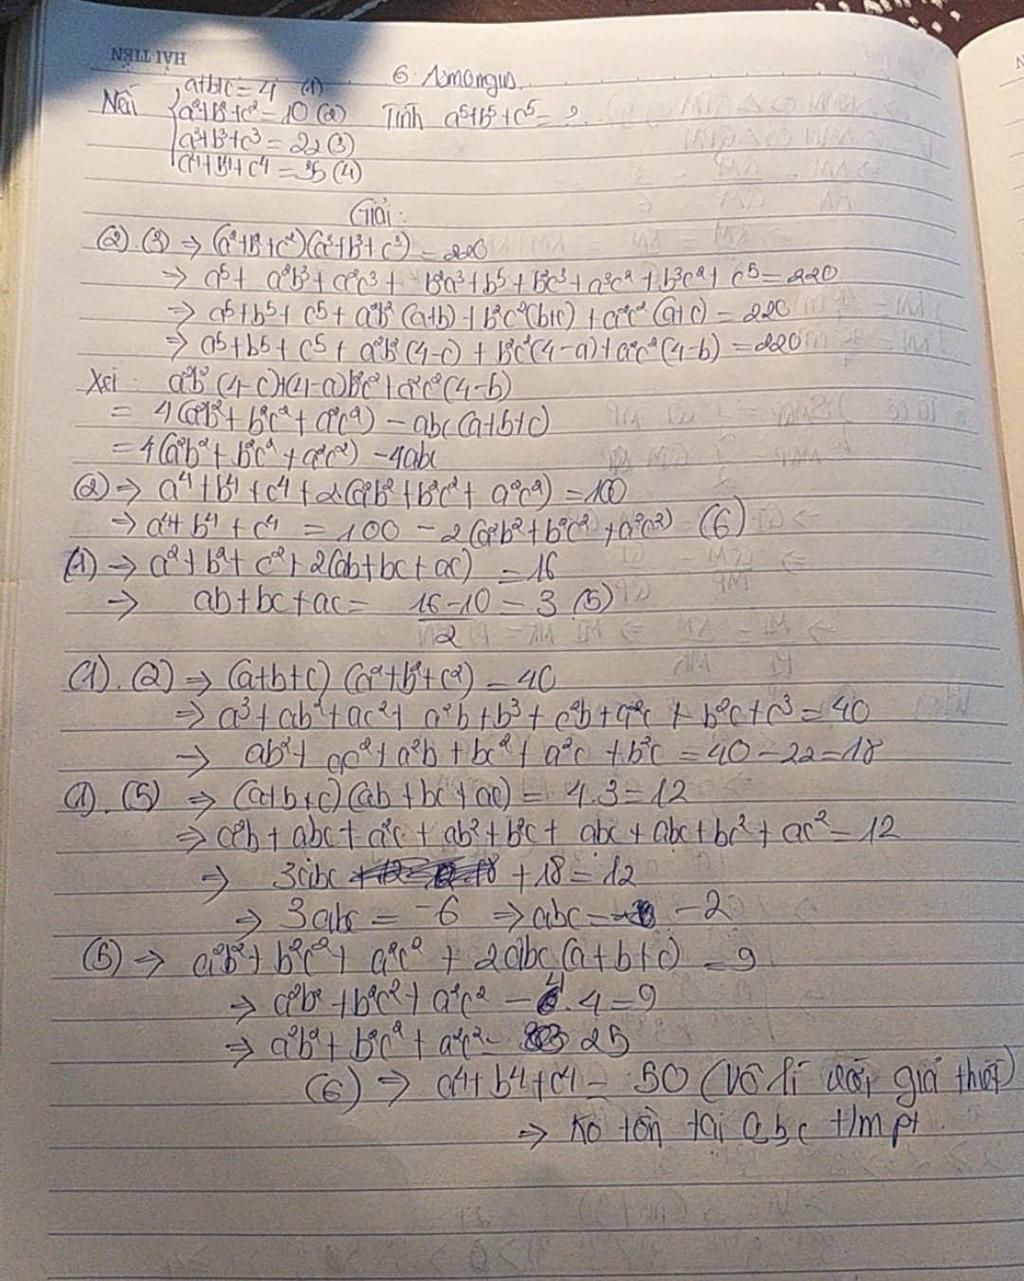 HẢI TIẾN
6. Amongus.
Nếu { a+b+c = 4 (1)
a²+b²+c² = 10 (2) Tính a⁵+b⁵+c⁵ = ?
a³+b³+c³ = 22 (3)
a⁴+b⁴+c⁴ = 35 (4)
Giải:
(2).(3) ⇒ (a²+b²+c²)(a³+b³+c³) = 220
⇒ a⁵ + a²b³ + a²c³ + b²a³ + b⁵ + b²c³ + a³c² + b³c² + c⁵ = 220
⇒ a⁵+b⁵+c⁵ + a²b²(a+b) + b²c²(b+c) + a²c²(a+c) = 220
⇒ a⁵+b⁵+c⁵ + a²b²(4-c) + b²c²(4-a) + a²c²(4-b) = 220
Xét: a²b²(4-c)+(4-a)b²c²+a²c²(4-b)
= 4(a²b²+b²c²+a²c²) - abc(a+b+c)
= 4(a²b²+b²c²+a²c²) - 4abc
(2) ⇒ a⁴+b⁴+c⁴+2(a²b²+b²c²+a²c²) = 100
⇒ a⁴+b⁴+c⁴ = 100 - 2(a²b²+b²c²+a²c²) (6)
(1) ⇒ a²+b²+c²+2(ab+bc+ac) = 16
⇒ ab+bc+ac = (16-10)/2 = 3 (5)
(1).(2) ⇒ (a+b+c)(a²+b²+c²) = 40
⇒ a³+ab²+ac²+a²b+b³+c²b+a²c+b²c+c³ = 40
⇒ ab²+ac²+a²b+bc²+a²c+b²c = 40-22 = 18
(1).(5) ⇒ (a+b+c)(ab+bc+ac) = 4.3 = 12
⇒ a²b+abc+a²c+ab²+b²c+abc+abc+bc²+ac² = 12
⇒ 3abc + 18 = 12
⇒ 3abc = -6 ⇒ abc = -2
(5) ⇒ a²b²+b²c²+a²c²+2abc(a+b+c) = 9
⇒ a²b²+b²c²+a²c² - 4.4 = 9
⇒ a²b²+b²c²+a²c² = 25
(6) ⇒ a⁴+b⁴+c⁴ = 50 (vô lí với giả thiết)
⇒ ko tồn tại a,b,c t/m pt.